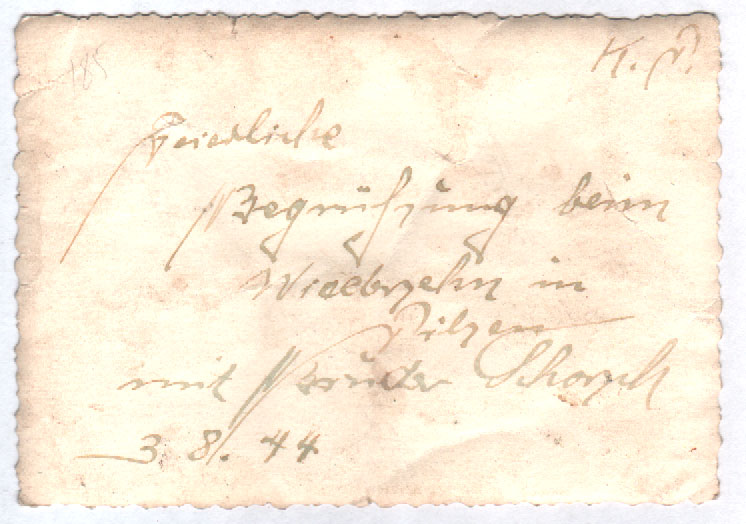 185
K. P.
Friedliche
Begrüßung beim
Wiedersehn in
Pilsen
mit Bruder Schorsch
3. 8. 44